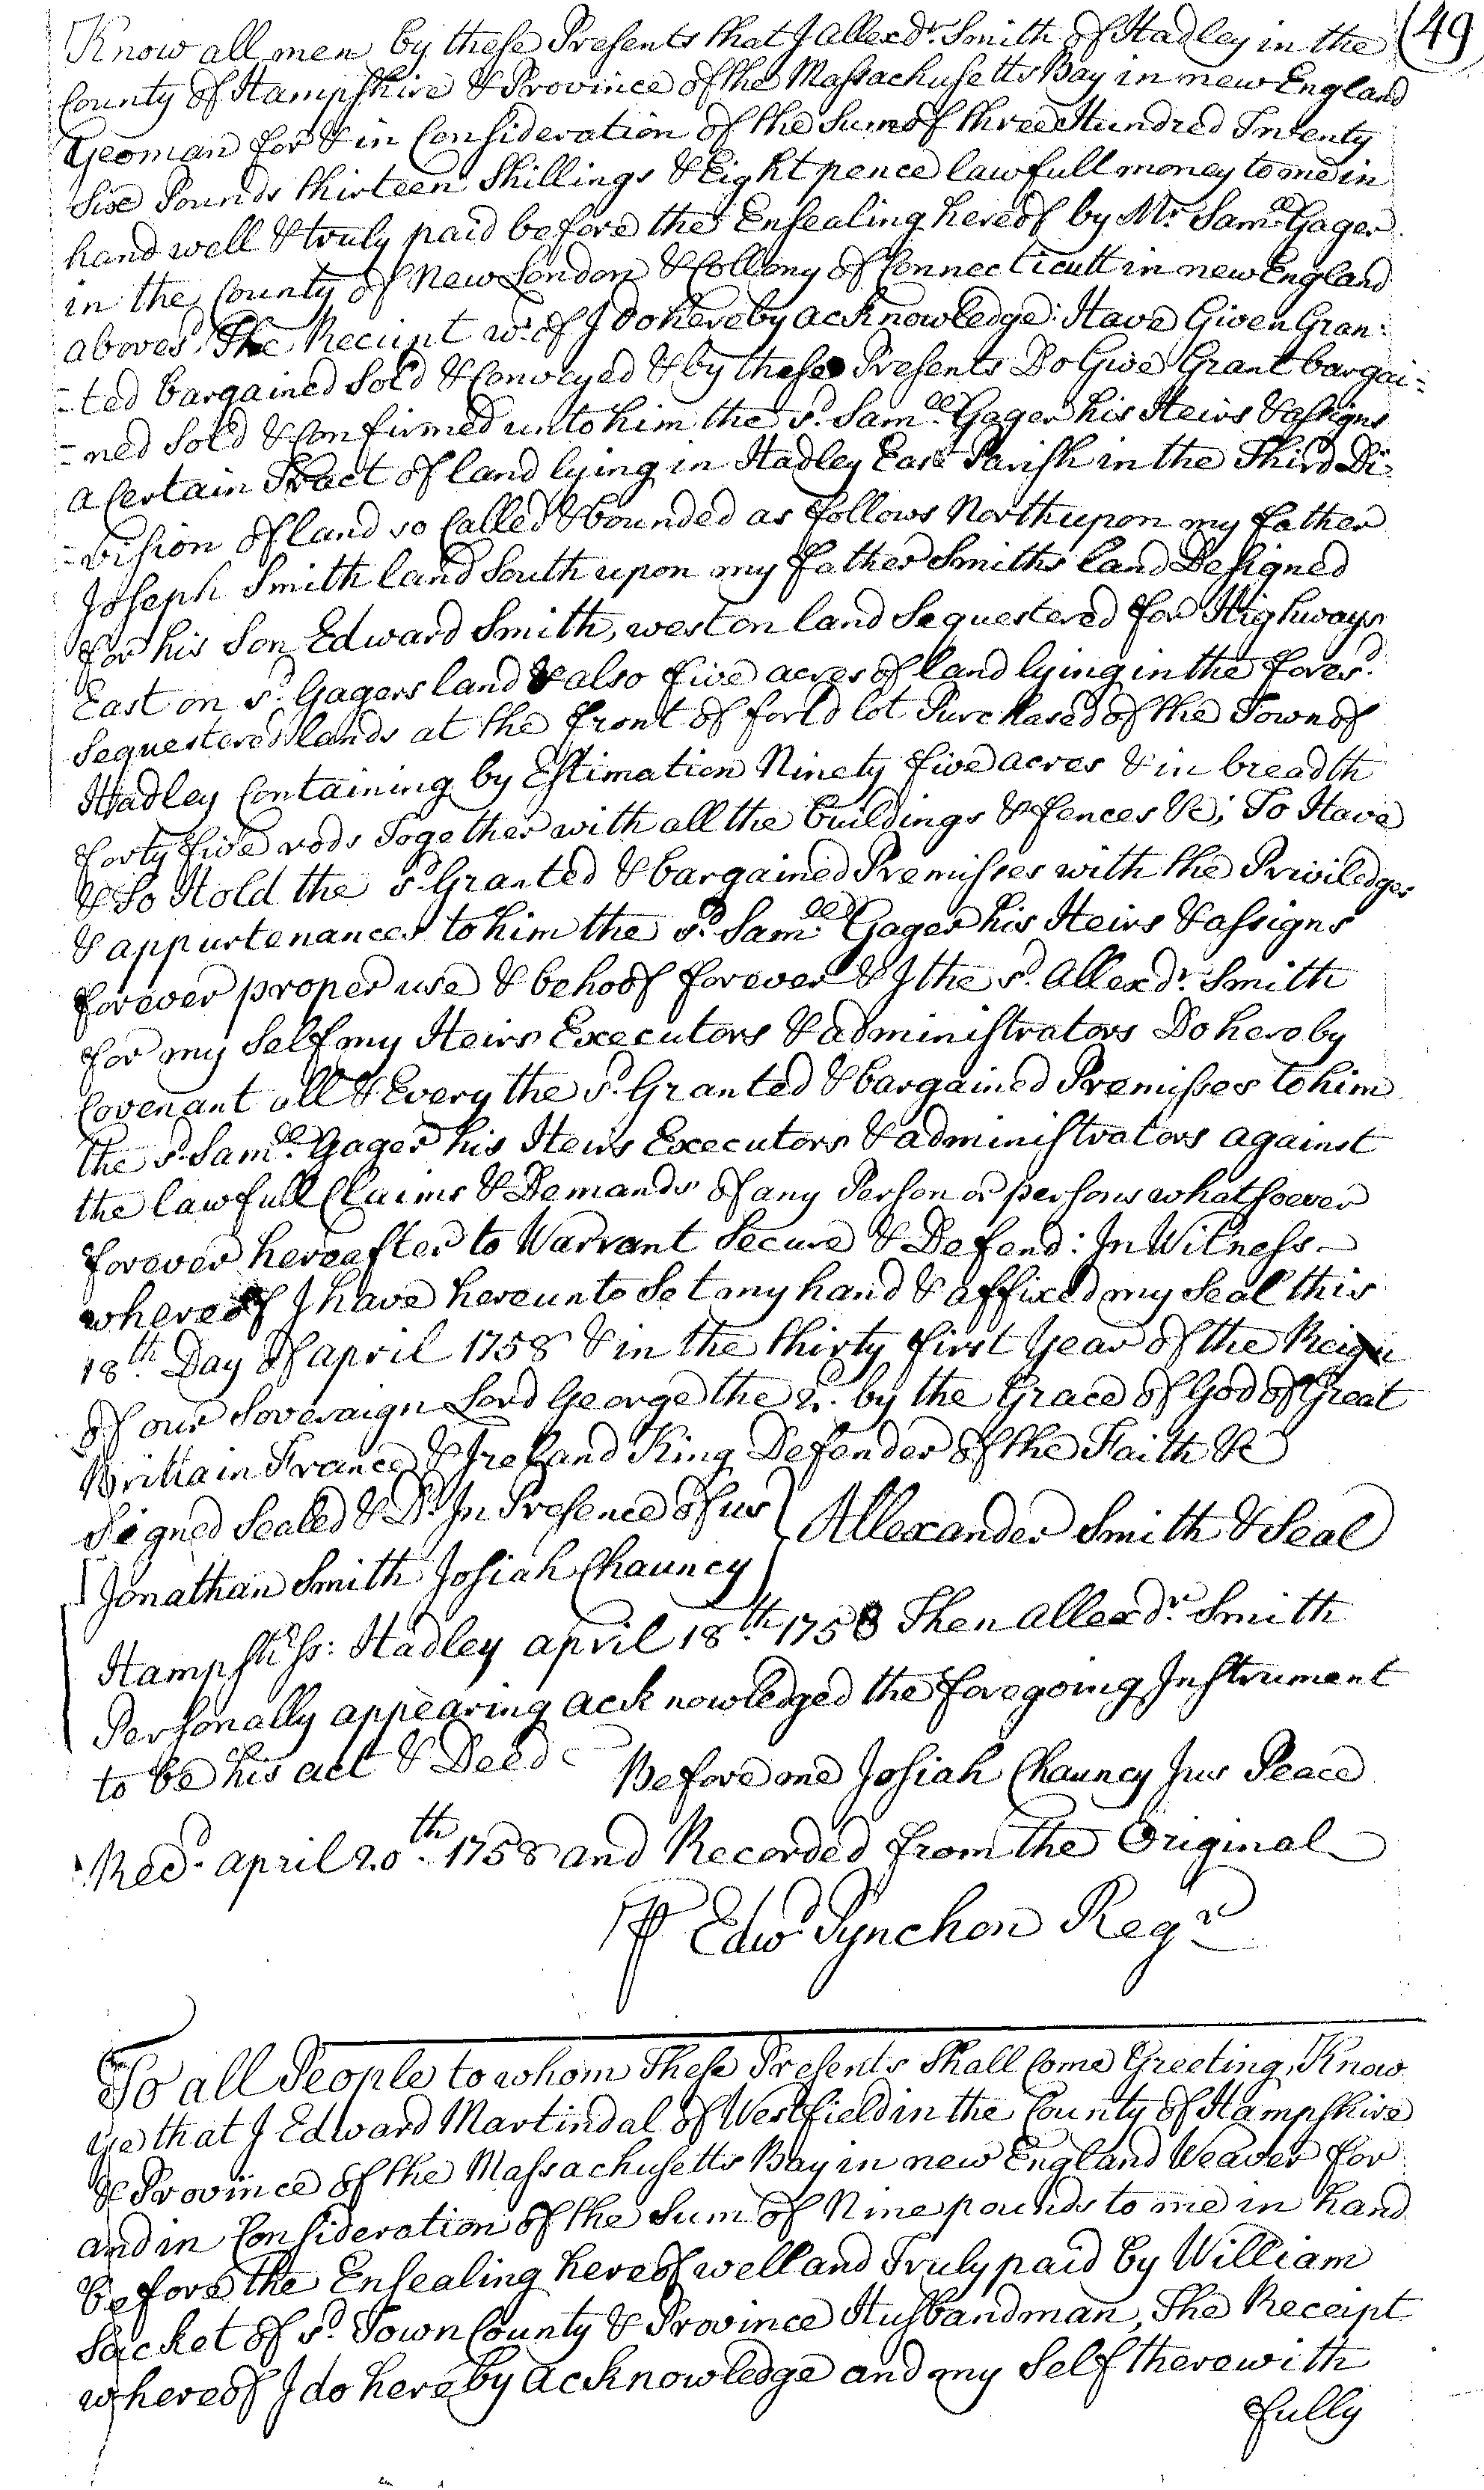 (49
Know all men by these Presents that I Allexdr. Smith of Hadley in the
County of Hampshire & Province of the Massachusetts Bay in new England
Yeoman for & in Consideration of the Sum of three Hundred Twenty
Six Pounds thirteen Shillings & Eight pence lawfull money to me in
hand well & truly paid before the Ensealing hereof by Mr. Samll. Gager
in the County of New London & Collony of Connecticutt in new England
aboves.d The Reciept w.of I do hereby acknowledge: Have Given Gran:
-ted bargained Sold & Conveyed & by these Presents Do Give Grant bargai=
=ned Sold & Confirmed unto him the s.d Samll. Gager his Heirs & assigns
a Certain Tract of land lying in Hadley East Parish in the Third Di=
=vision of land so Called & bounded as follows North upon my father
Joseph Smith land South upon my father Smiths land Designed
for his Son Edward Smith, west on land Sequestered for Highways
East on s.d Gagers land & also five acres of land lying in the fores.d
Sequestered lands at the front of fors.d lot Purchased of the Town of
Hadley Containing by Estimation Ninety five acres & in breadth
forty five rods Together with all the buildings & fences &c; To Have
& to Hold the s.d Granted & bargained Premisses with the Priviledges
& appurtenances to him the s.d Samll. Gager his Heirs & assigns
forever proper use & behoof forever & I the s.d Allexdr. Smith
for my Self my Heirs Executors & administrators Do hereby
Covenant all & Every the s.d Granted & bargained Premisses to him
the s.d Samll. Gager his Heirs Executors & administrators against
the lawfull Claims & Demands of any Person or persons whatsoever
forever hereafter to Warrant Secure & Defend: In Witness
whereof I have hereunto Set my hand & affixed my Seal this
18th. Day of april 1758 & in the thirty first Year of the Reign
of our Soveraign Lord George the 2.d by the Grace of God of Great
Brittain France & Ireland King Defender of the Faith &c
Signed Sealed & D.d In Presence of us } Allexander Smith & Seal
Jonathan Smith Josiah Chauncy
Hampshr. ss: Hadley april 18th. 1758 Then allexdr. Smith
Personally appearing acknowledged the foregoing Instrument
to be his act & Deed Before me Josiah Chauncy Jus Peace
Rec.d april 20th. 1758 and Recorded from the Original
⅌ Edw.d Pynchon Regr.
To all People to whom These Presents Shall Come Greeting, Know
ye that I Edward Martindal of Westfield in the County of Hampshire
& Province of the Massachusetts Bay in new England Weaver for
and in Consideration of the Sum of Nine pounds to me in hand
before the Ensealing hereof well and Truly paid by William
Sacket of s.d Town County & Province Husbandman, The Receipt
whereof I do hereby acknowledge and my Self therewith
fully